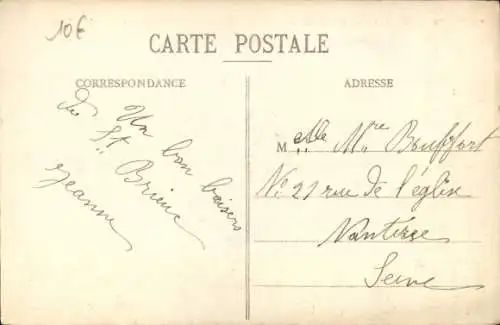 10€
CARTE POSTALE
CORRESPONDANCE
Un bon baisers
de St Brieuc
Jeanne
ADRESSE
M
No 21 rue de l'église
Nanterre
Seine